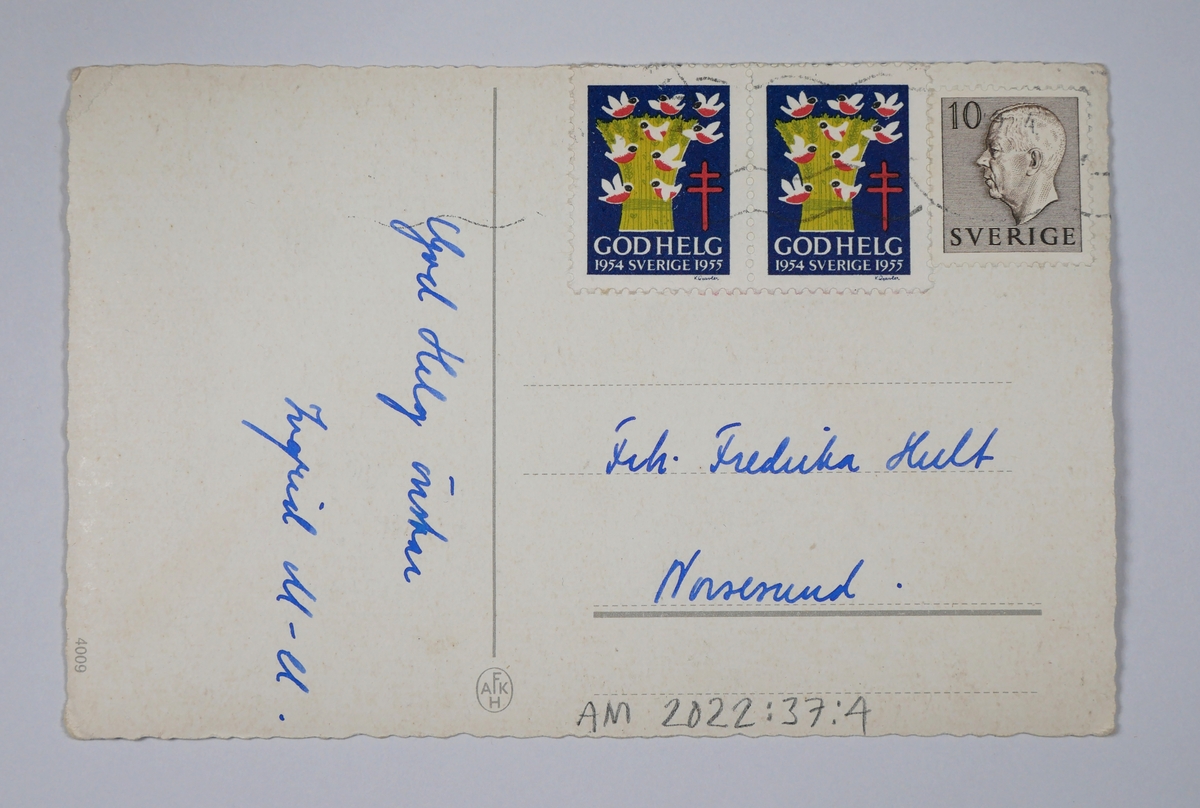 GOD HELG
1954 SVERIGE 1955
GOD HELG
1954 SVERIGE 1955
10
SVERIGE
God Helg önskar
Ingrid M-M.
Frk. Fredrika Hult
Norsesund.
4009
AFKH
AM 2022:37:4